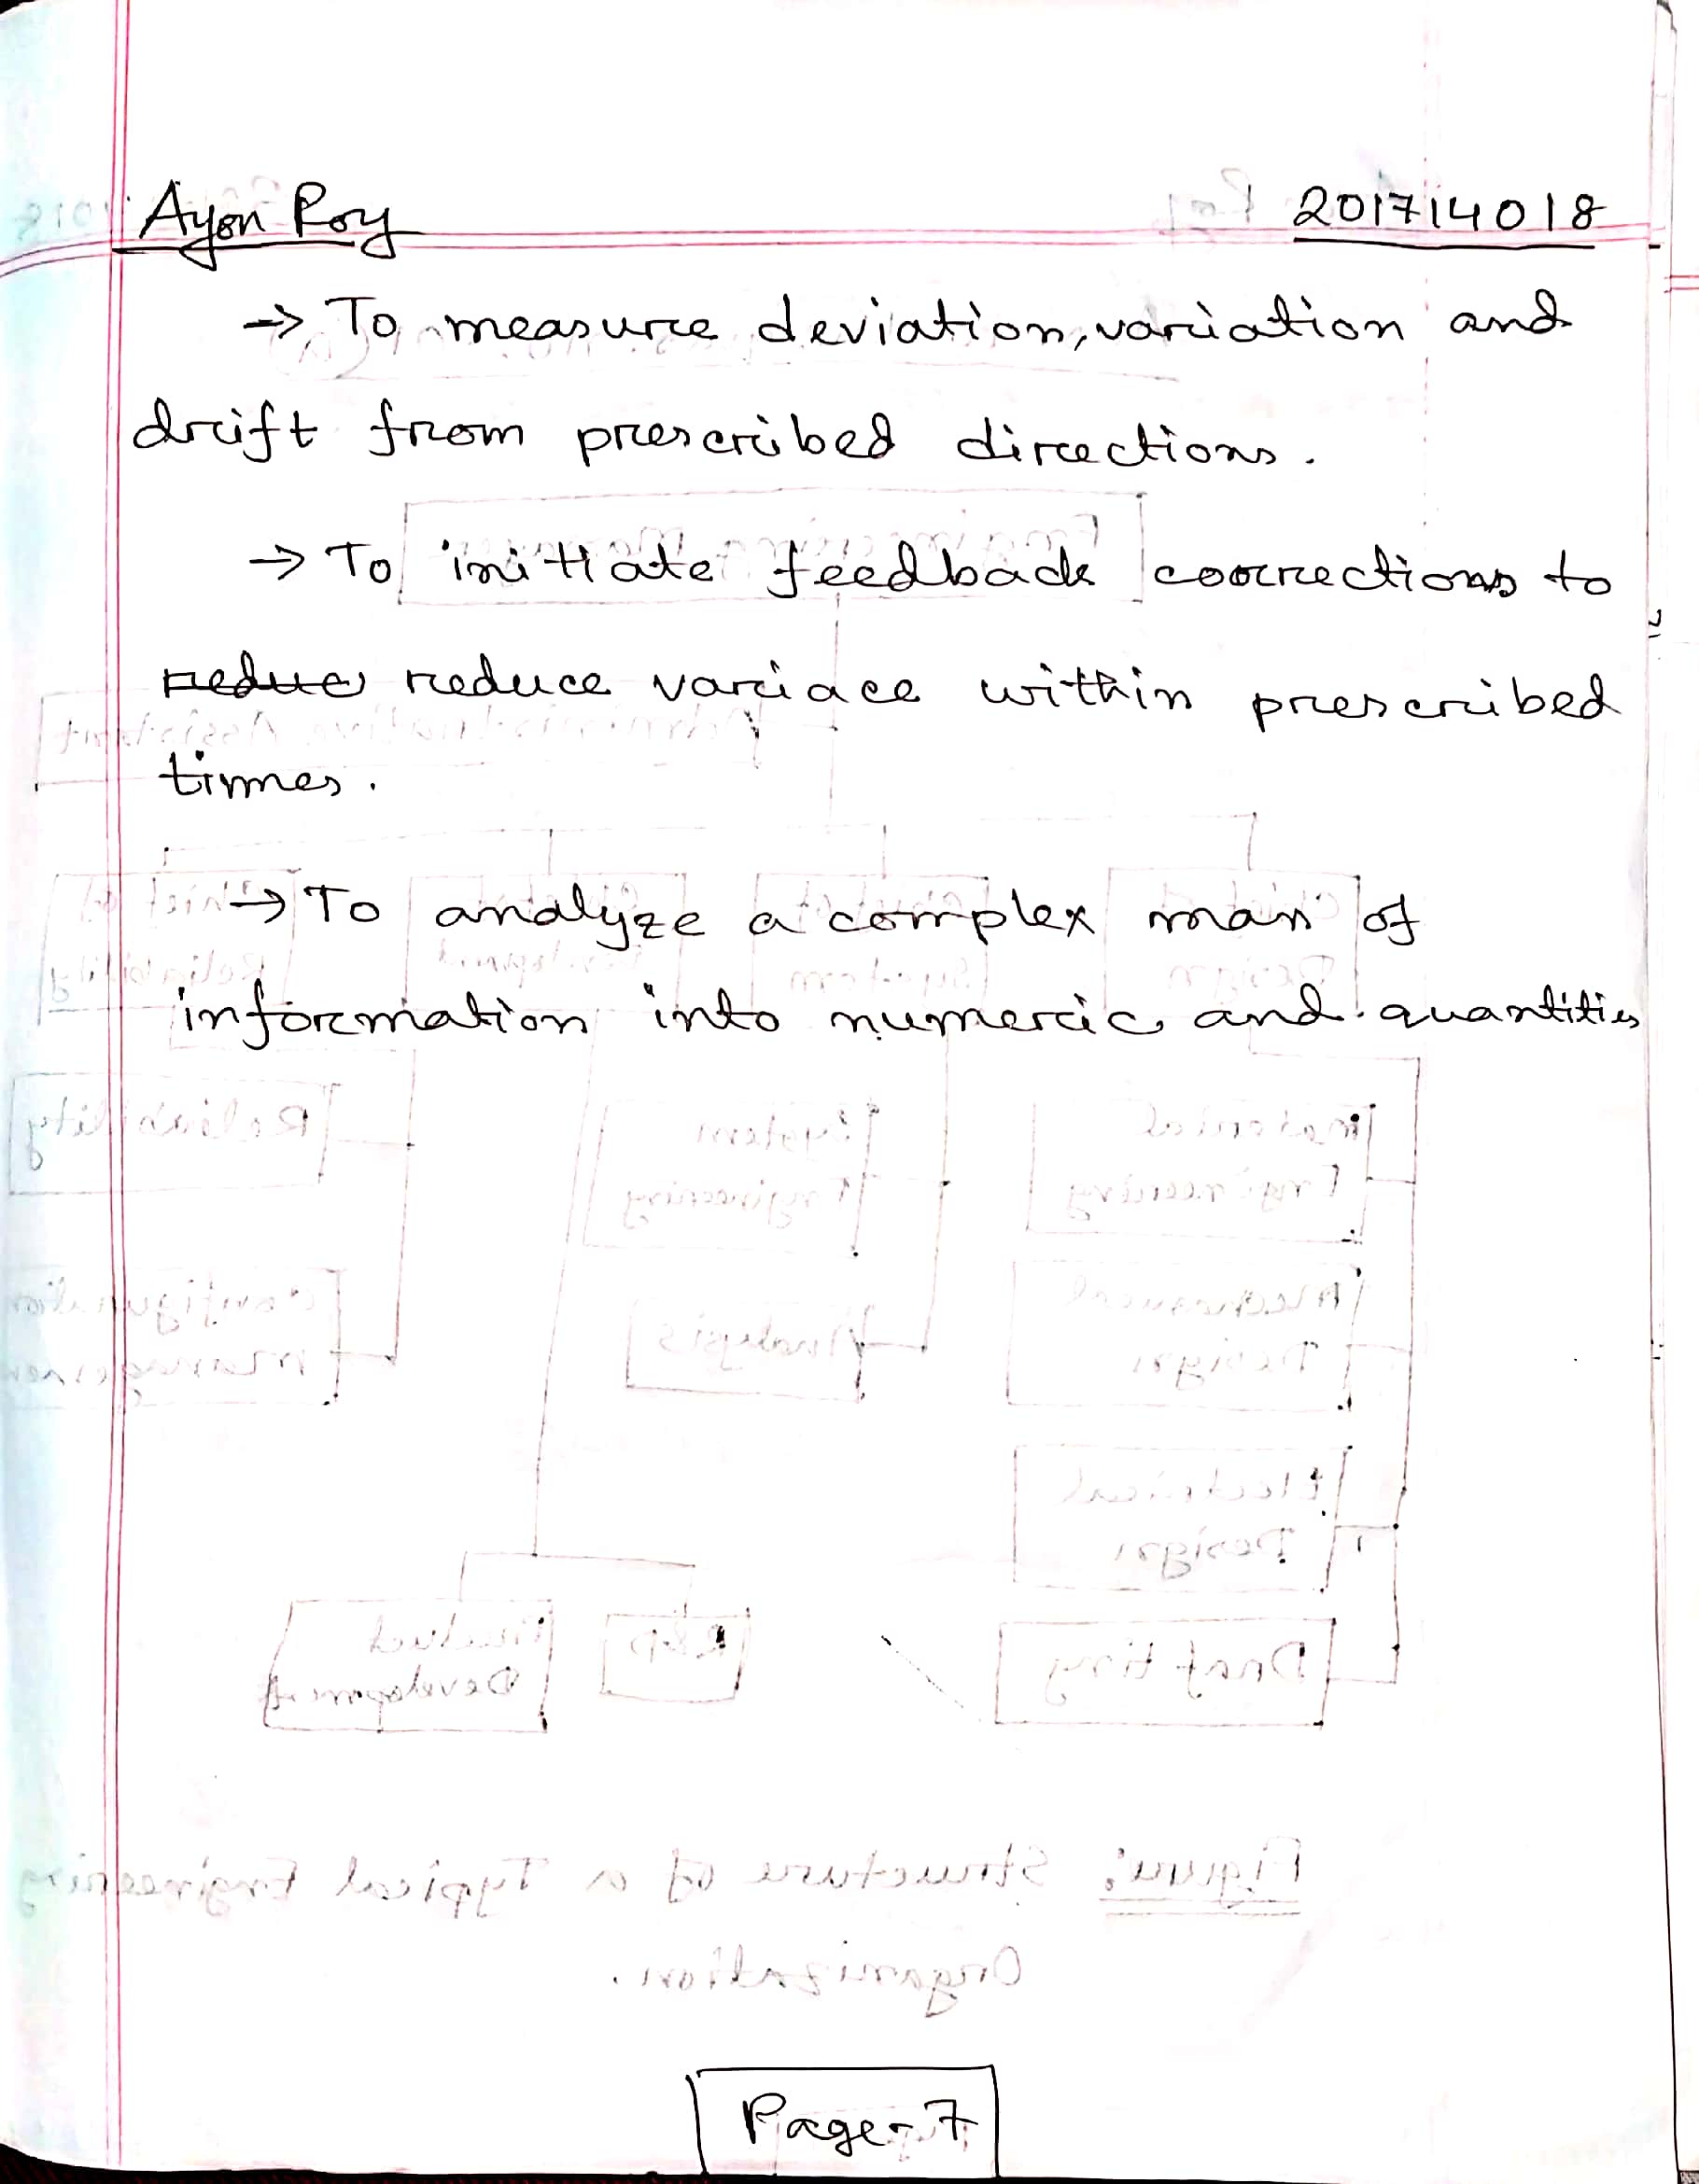 Ayon Roy 201714018
→ To measure deviation, variation and
drift from prescribed directions.
→ To initiate feedback corrections to
reduce reduce variace within prescribed
times.
→ To analyze a complex mass of
information into numeric and quantities
Page-7